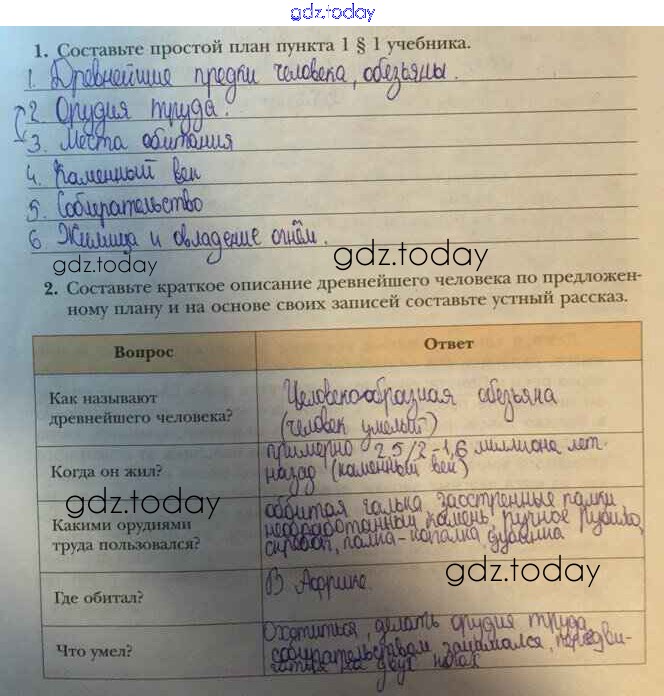 gdz.today
1. Составьте простой план пункта 1 § 1 учебника.
1. Древнейшие предки человека, обезьяны.
2. Орудия труда.
3. Места обитания
4. Каменный век
5. Собирательство
6 Жилища и овладение огнём.
gdz.today
gdz.today
2. Составьте краткое описание древнейшего человека по предложен-
ному плану и на основе своих записей составьте устный рассказ.
Вопрос
Ответ
Как называют
древнейшего человека?
Человекообразная обезьяна
(человек умелый)
Когда он жил?
примерно 2,5/2-1,6 миллиона лет
назад (каменный век)
gdz.today
Какими орудиями
труда пользовался?
оббитая галька заостренные палки
необработанный камень, ручное рубило,
скребок, палка-копалка, дубинка
gdz.today
Где обитал?
В Африке.
Что умел?
Охотиться, делать орудия труда,
собирательством занимался, передви-
гаться на двух ногах